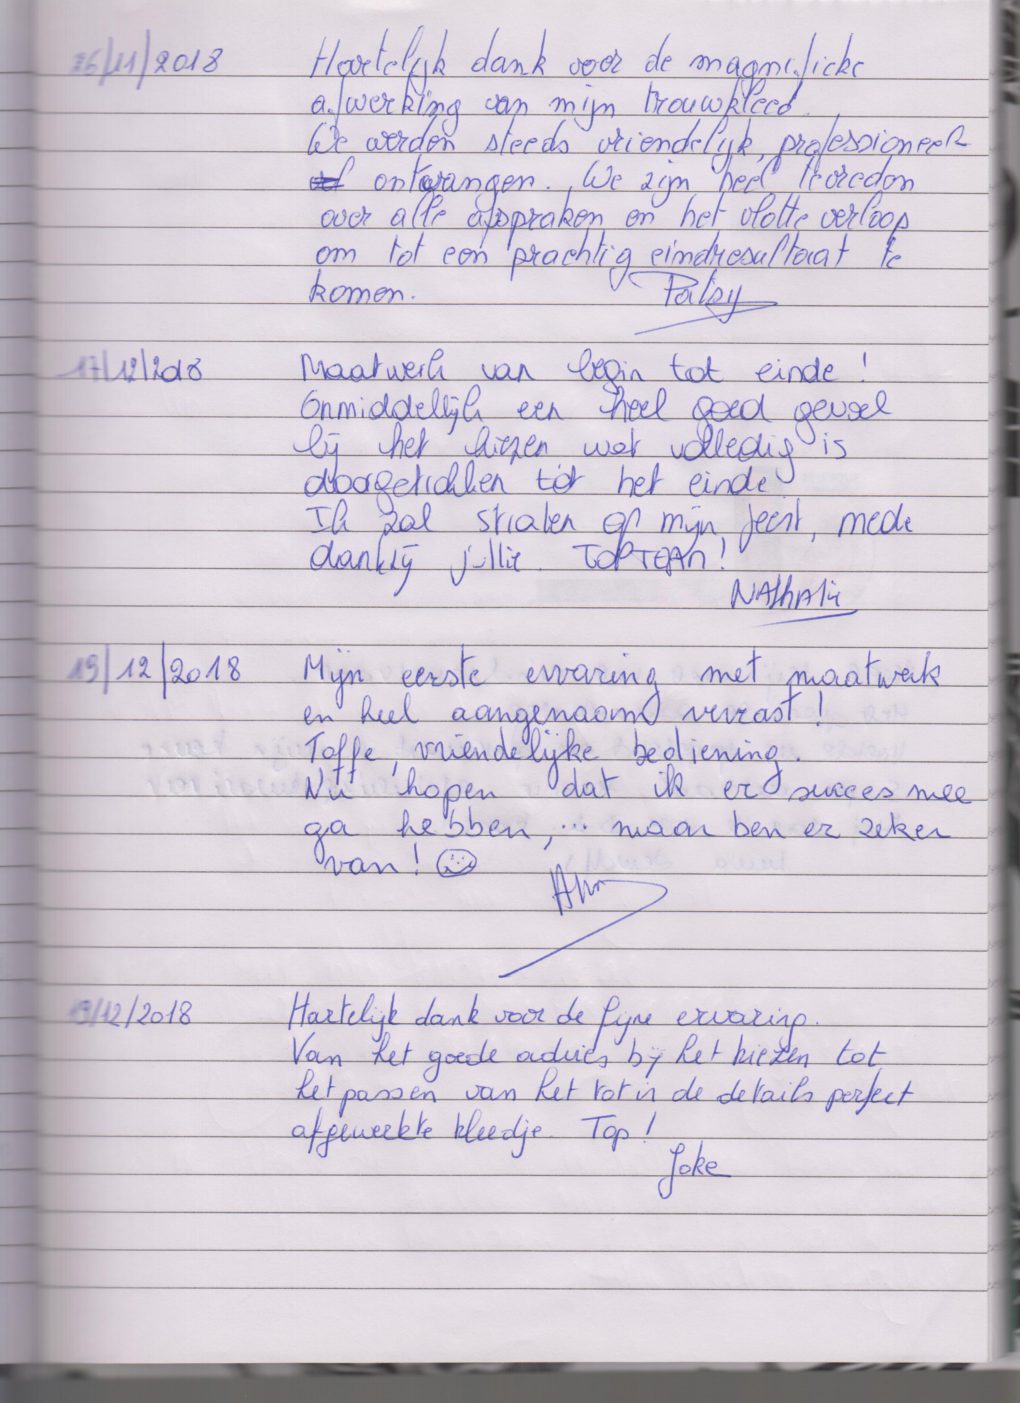 26/11/2018 Hartelijk dank voor de magnifieke
afwerking van mijn trouwkleed.
We werden steeds vriendelijk, professioneel
ontvangen. We zijn heel tevreden
over alle afspraken en het vlotte verloop
om tot een prachtig eindresultaat te
komen. Patsy
17/12/2018 Maatwerk van begin tot einde!
Onmiddellijk een heel goed gevoel
bij het kiezen wat volledig is
doorgetrokken tot het einde.
Ik zal stralen op mijn feest, mede
dankzij jullie. TOPTEAM!
NAthAlie
19/12/2018 Mijn eerste ervaring met maatwerk
en heel aangenaam verrast!
Toffe, vriendelijke bediening.
Nu hopen dat ik er succes mee
ga hebben, ... maar ben er zeker
van! ☺
Ann
19/12/2018 Hartelijk dank voor de fijne ervaring.
Van het goede advies bij het kiezen tot
het passen van het tot in de details perfect
afgewerkte kleedje. Top!
Joke